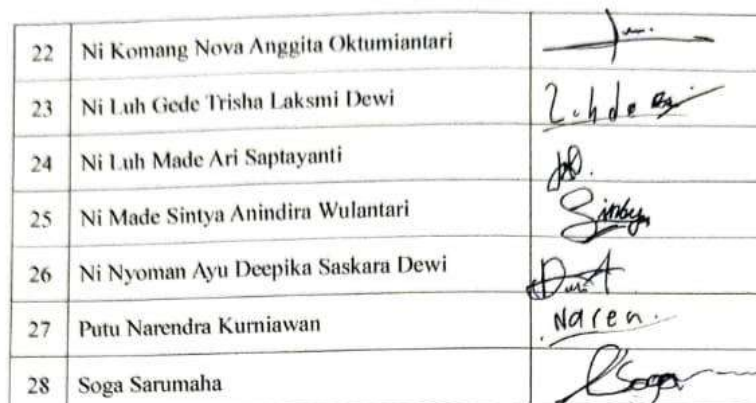 22 Ni Komang Nova Anggita Oktumiantari
23 Ni Luh Gede Trisha Laksmi Dewi
24 Ni Luh Made Ari Saptayanti
25 Ni Made Sintya Anindira Wulantari
26 Ni Nyoman Ayu Deepika Saskara Dewi
27 Putu Narendra Kurniawan Naren.
28 Soga Sarumaha Soga